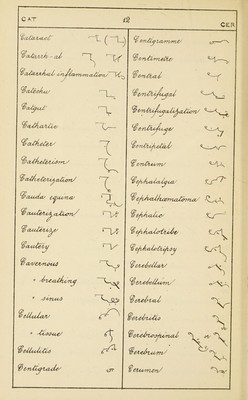 CAT
12
CEN
Cataract
Catarrh-al
Catarrhal inflammation
Catechu
Catgut
Cathartic
Catheter
Catheterism
Catheterization
Cauda equina
Cauterization
Cauterize
Cautery
Cavernous
" breathing
" sinus
Cellular
" tissue
Cellulitis
Centigrade
Centigramme
Centimetre
Central
Centrifugal
Centrifugalization
Centrifuge
Centripetal
Centrum
Cephalalgia
Cephalhæmatoma
Cephalic
Cephalotribe
Cephalotripsy
Cerebellar
Cerebellum
Cerebral
Cerebritis
Cerebrospinal
Cerebrum
Cerumen